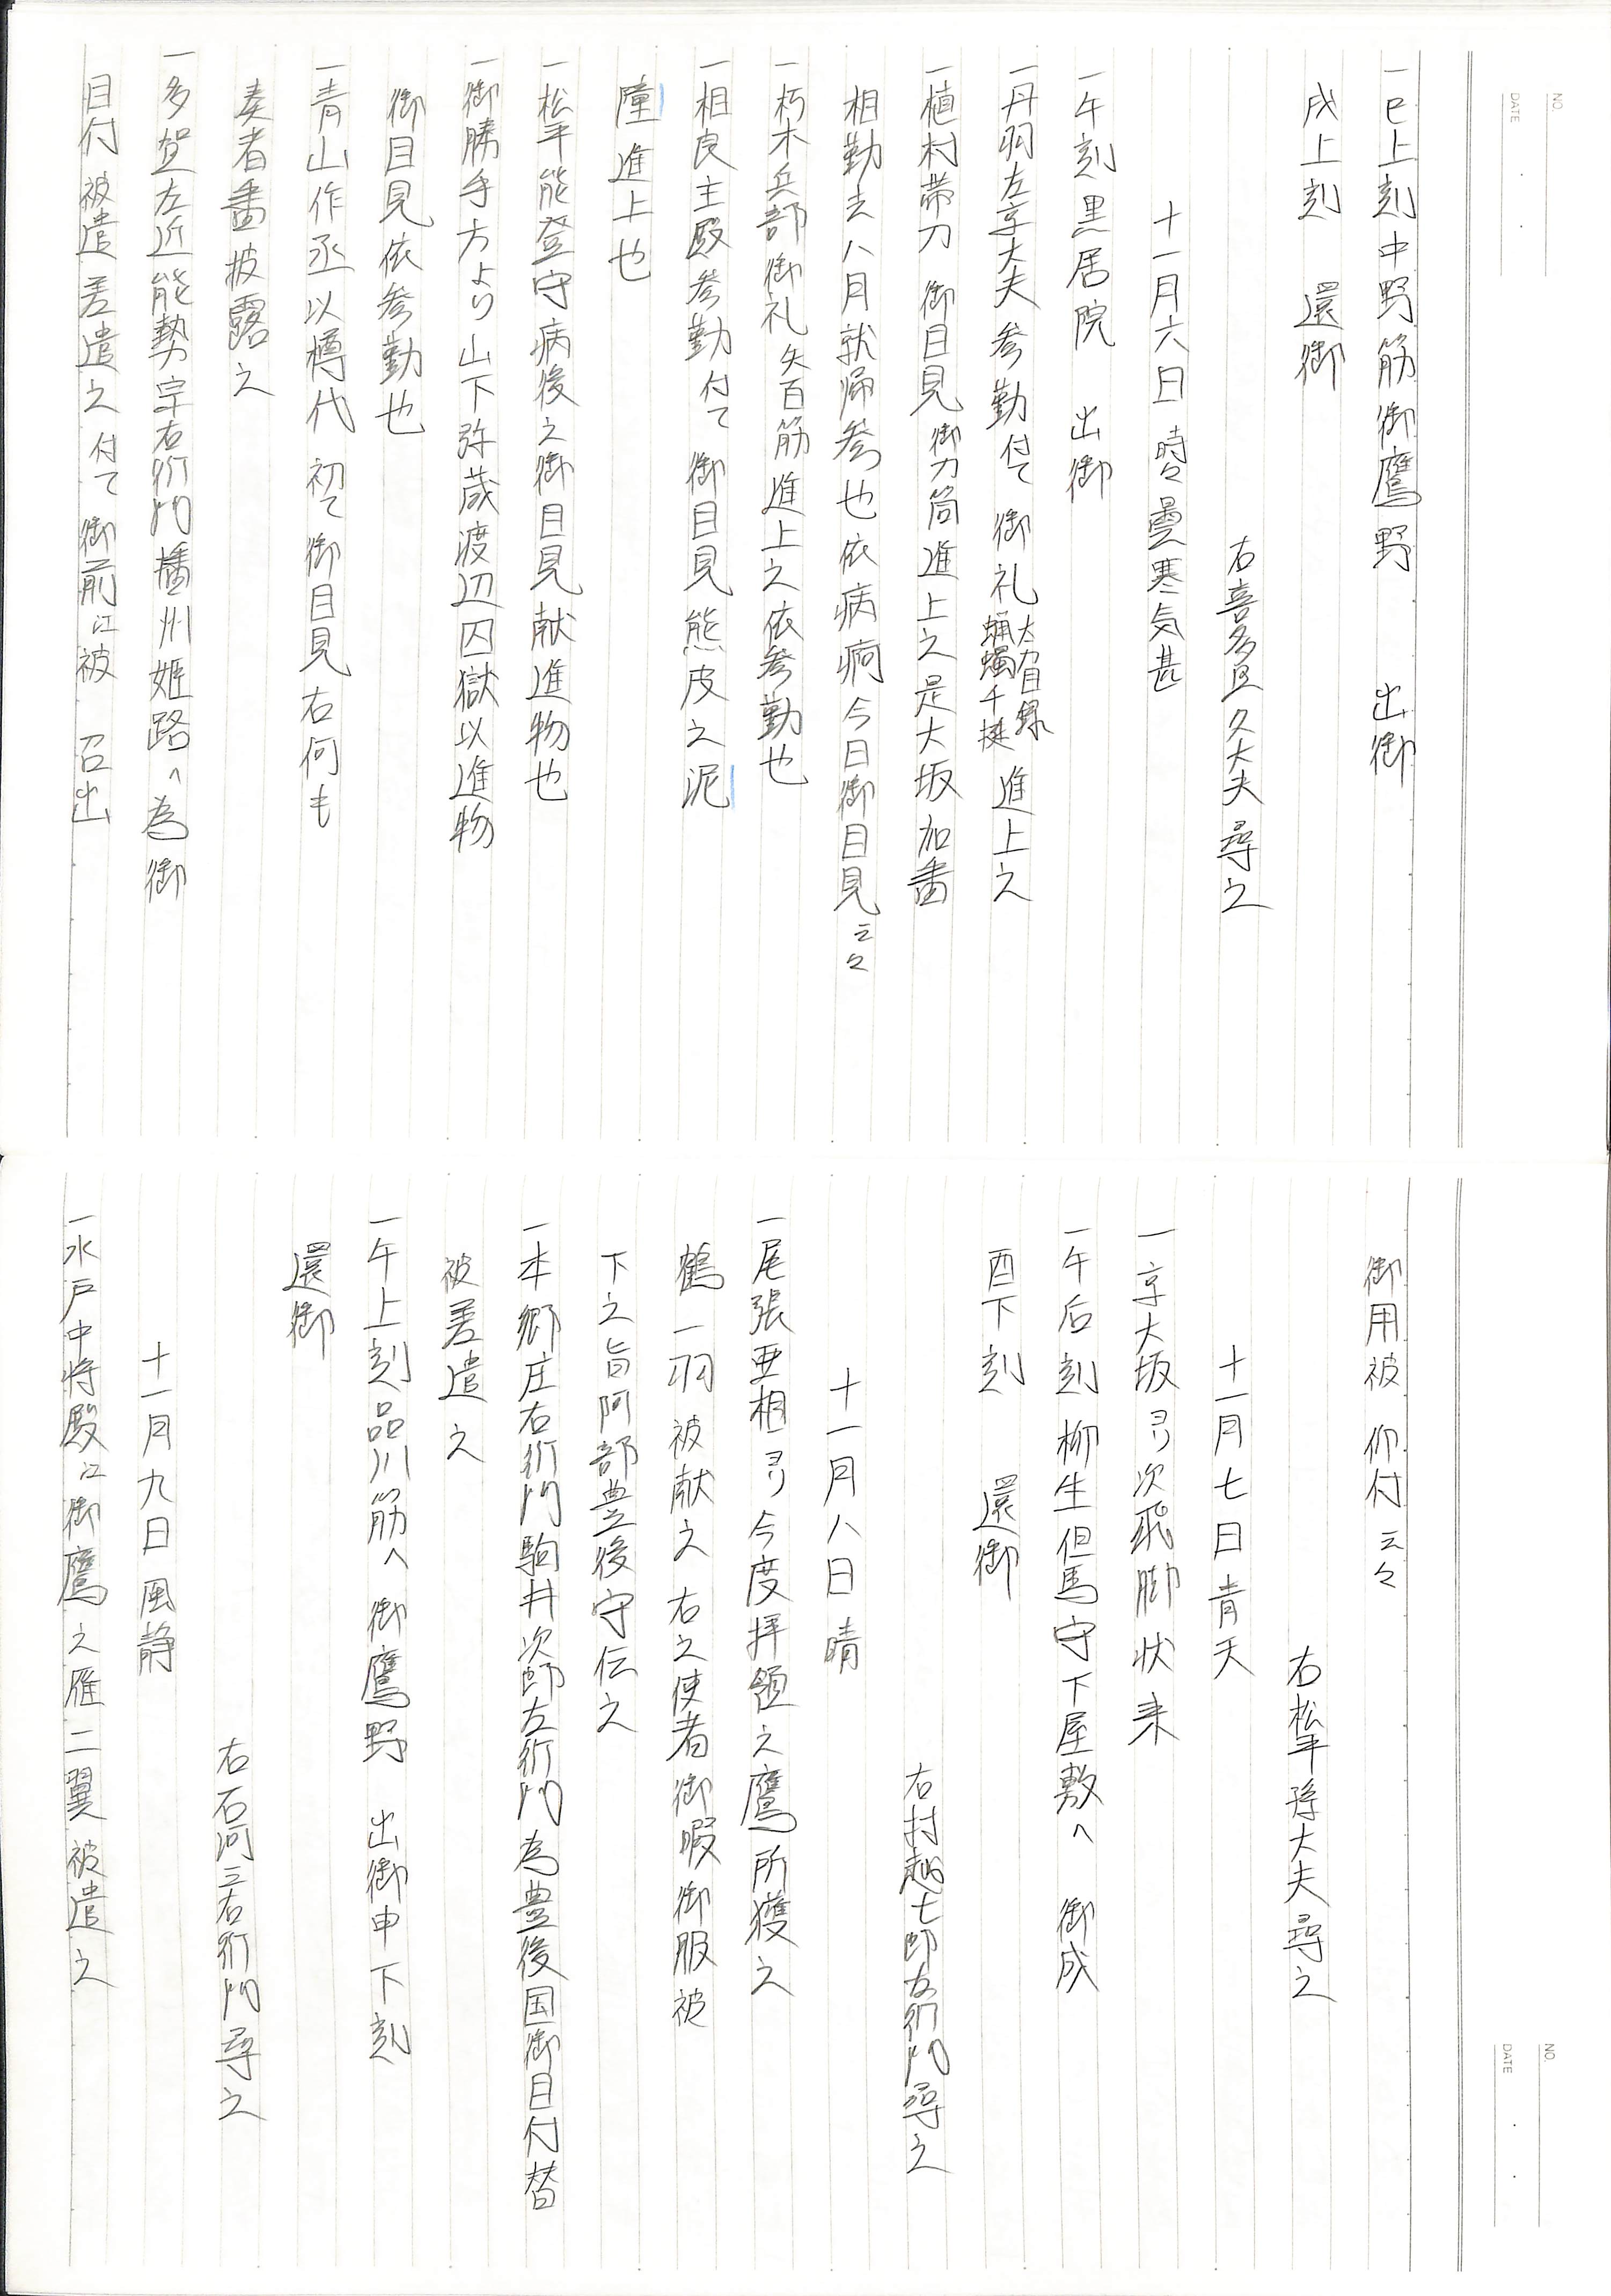 NO.
DATE
一巳上刻中野筋御鷹野　出御
戌上刻　還御
右喜多見久大夫尋之
十一月六日 時々曇寒気甚
一午刻黒居院　出御
一丹羽左京大夫参勤付て御礼 太刀目録 蝋燭千挺 進上之
一植村帯刀　御目見御刀筒進上之是大坂加番
相勤去八月就帰参也依病痾今日御目見云々
一朽木兵部御礼矢百筋進上之依参勤也
一相良主殿参勤付て　御目見熊皮之泥
障進上也
一松平能登守病後之御目見献進物也
一御勝手方より山下弥蔵渡辺囚獄以進物
御目見依参勤也
一青山作丞以樽代　初て御目見右何も
奏者番披露之
一多賀左近能勢宇右衛門播州姫路へ為御
目付　被遣差遣之付て　御前江被　召出
御用被　仰付云々
右松平孫大夫尋之
十一月七日青天
一京大坂ヨリ次飛脚状来
一午后刻柳生但馬守下屋敷へ　御成
酉下刻　還御
右村越七郎左衛門尋之
十一月八日晴
一尾張亜相ヨリ今度拝領之鷹所獲之
鶴一羽被献之右之使者御暇御服被
下之旨阿部豊後守伝之
一本郷庄右衛門駒井次郎左衛門為豊後国御目付替
被差遣之
一午上刻品川筋へ　御鷹野　出御申下刻
還御
右石河三右衛門尋之
十一月九日風静
一水戸中将殿江御鷹之雁二翼被遣之
NO.
DATE